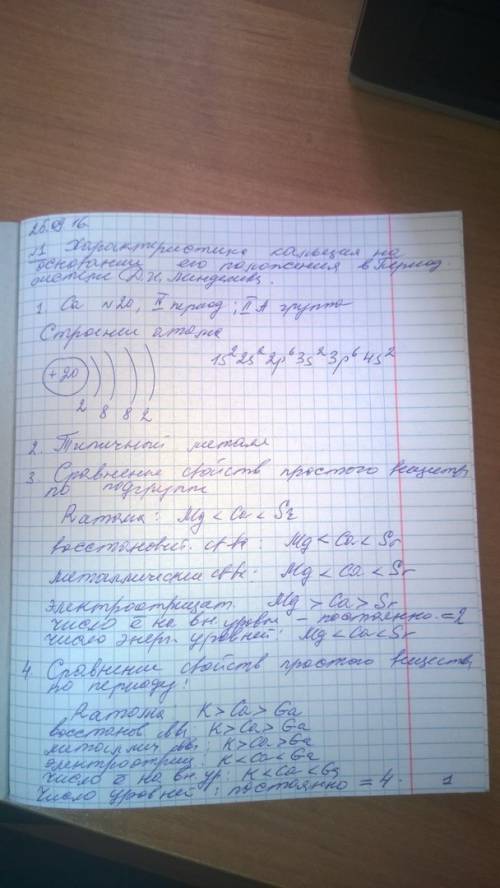 26.09 16.
№1 Характеристика кальция на
основании его положения в Период.
системе Д.И. Менделеева.
1. Ca №20, IV период; II A группа
Строении атома
+20 ) ) ) ) 1s² 2s² 2p⁶ 3s² 3p⁶ 4s²
2 8 8 2
2. Типичный металл
3. Сравнение свойств простого вещества
по подгруппе
R атома: Mg < Ca < Sr
восстановит. св-ва: Mg < Ca < Sr
металлические св-ва: Mg < Ca < Sr
электроотрицат. Mg > Ca > Sr
число ē на вн. уровне – постоянно = 2
число энерг. уровней: Mg < Ca < Sr
4. Сравнение свойств простого веществ
по периоду:
R атома: K > Ca > Ga
восстанов. св-ва: K > Ca > Ga
металлич. св-ва: K > Ca > Ga
электроотриц: K < Ca < Ga
число ē на вн. ур: K < Ca < Ga
Число уровней: постоянно = 4. 1